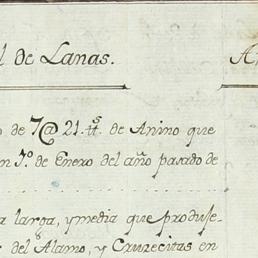 l de Lanas.
o de 7@ 21.tt. de Anino que
n 1º. de Enero del año pasado de
a larga, y media que produse-
del Alamo, y Cruzecitas en